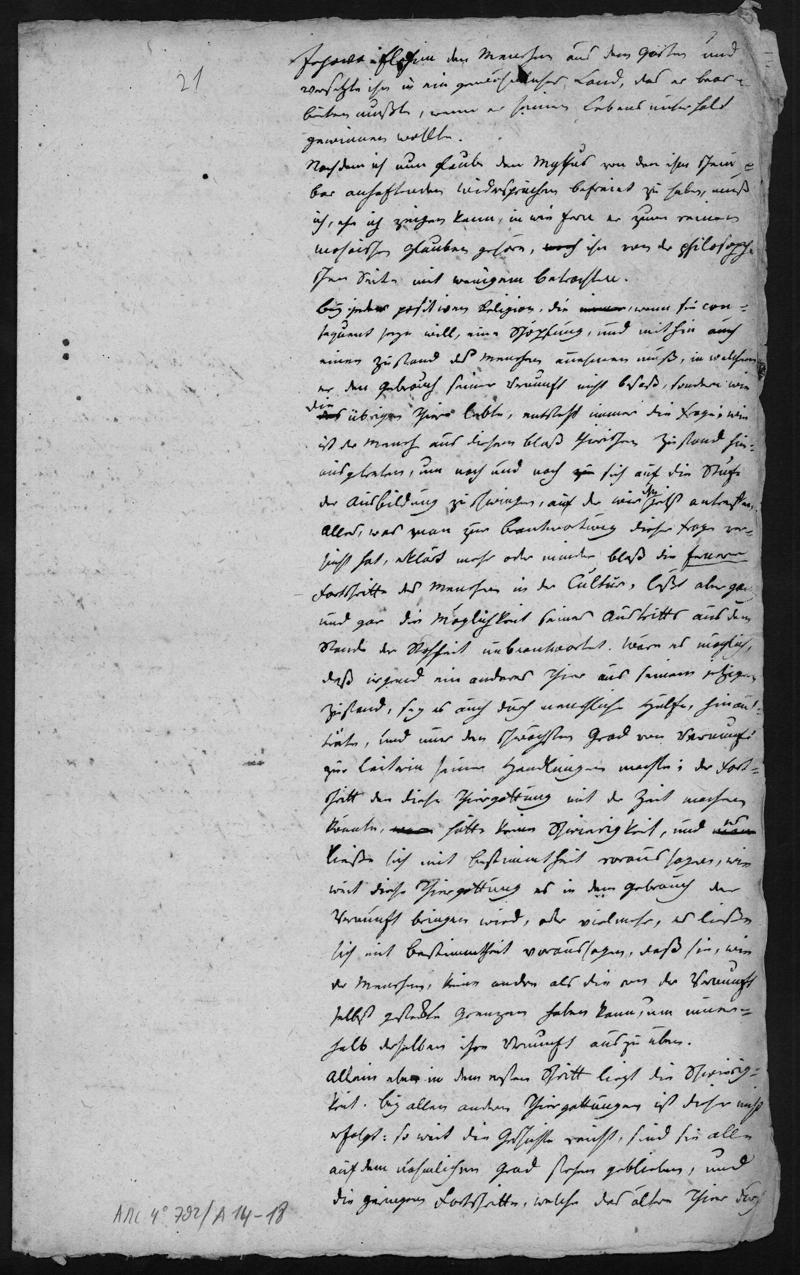 21
Jehova Elohim den Menschen aus dem Garten und
versetzte ihn in ein gewöhnliches Land, das er bear-
beiten mußte, wenn er seinen Lebensunterhalt
gewinnen wollte.
Nachdem ich nun glaube den Mythus von den ihm schein-
bar anhaftenden Widersprüchen befreiet zu haben, muß
ich, ehe ich zeigen kann, in wie fern er zum reinen
mosaischen Glauben gehöre, noch ihn von der philosophi-
schen Seite mit wenigem betrachten.
Bey jeder positiven Religion, die immer, wenn sie con-
sequent seyn will, eine Schöpfung, und mithin auch
einen Zustand des Menschen annehmen muß, in welchem
er den Gebrauch seiner Vernunft nicht besaß, sondern wie
die
das übrigen Thiere lebte, entsteht immer die Frage; wie
ist der Mensch aus diesem bloß thierischen Zustand her-
ausgetreten, um nach und nach zu sich auf die Stufe
der Ausbildung zu schwingen, auf der wir ihn jetzt antreffen.
Alles, was man zur Beantwortung dieser Frage ver-
sucht hat, erklärt mehr oder minder bloß die fernern
Fortschritte des Menschen in der Cultur, läßt aber ganz
und gar die Möglichkeit seines Austritts aus dem
Stande der Rohheit unbeantwortet. Wäre es möglich,
daß irgend ein anderes Thier aus seinem jetzigen
Zustand, sey es auch durch menschliche Hülfe, hinaus-
träte, und nur den schwächsten Grad von Vernunft
zur Leiterin seiner Handlungen machte; der Fort-
schritt den diese Thiergattung mit der Zeit machen
könnte, hätte keine Schwierigkeit, und es
ließe sich mit Bestimmtheit voraussagen, wie
weit diese Thiergattung es in dem Gebrauch der
Vernunft bringen wird, oder vielmehr, es ließe
sich mit Bestimmtheit voraussagen, daß sie, wie
der Menschen, keine andere als die von der Vernunft
selbst gesteckte Grenzen haben kann, um inner-
halb derselben ihre Vernunft auszuüben.
Allein eben in dem ersten Schritt liegt die Schwierig-
keit. Bey allen andern Thiergattungen ist dieser nicht
erfolgt: so weit die Geschichte reicht, sind sie alle
auf dem nähmlichen Grad stehen geblieben, und
die geringen Fortschritte, welche das ältere Thier durch
ARC 4° 792/A 14-18